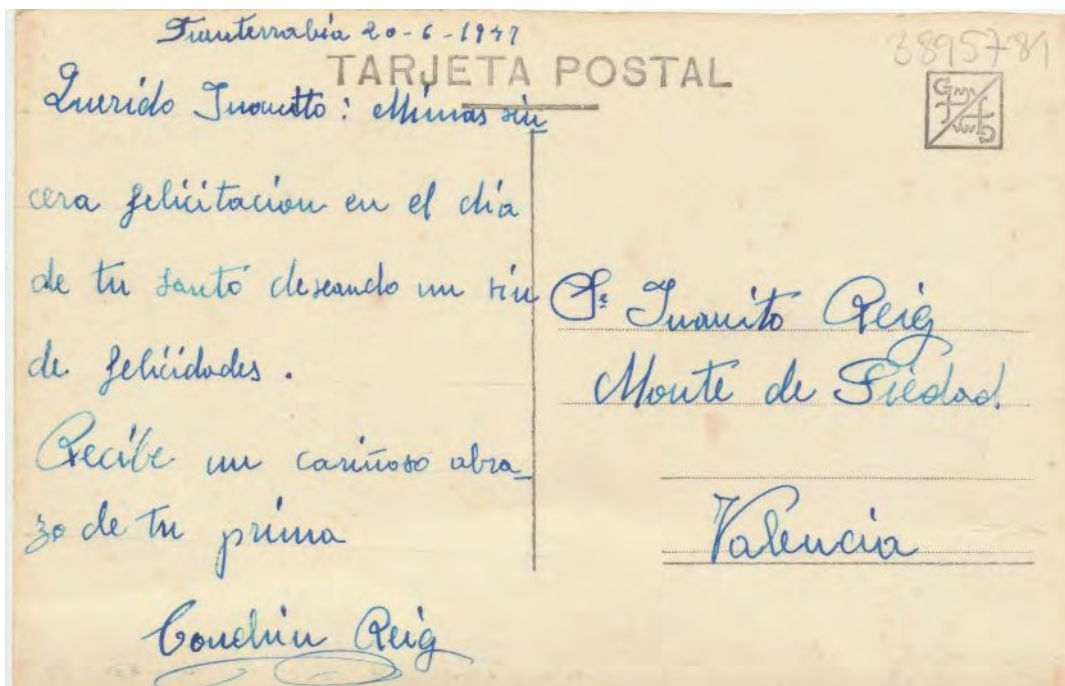 Fuenterrabia 20-6-1947
TARJETA POSTAL
3895781
Querido Juanito: Mi mas sin
cera felicitacion en el dia
de tu santo deseando un sin
de felicidades.
Recibe un cariñoso abra-
zo de tu prima
Conchin Reig
Sr. Juanito Reig
Monte de Piedad
Valencia